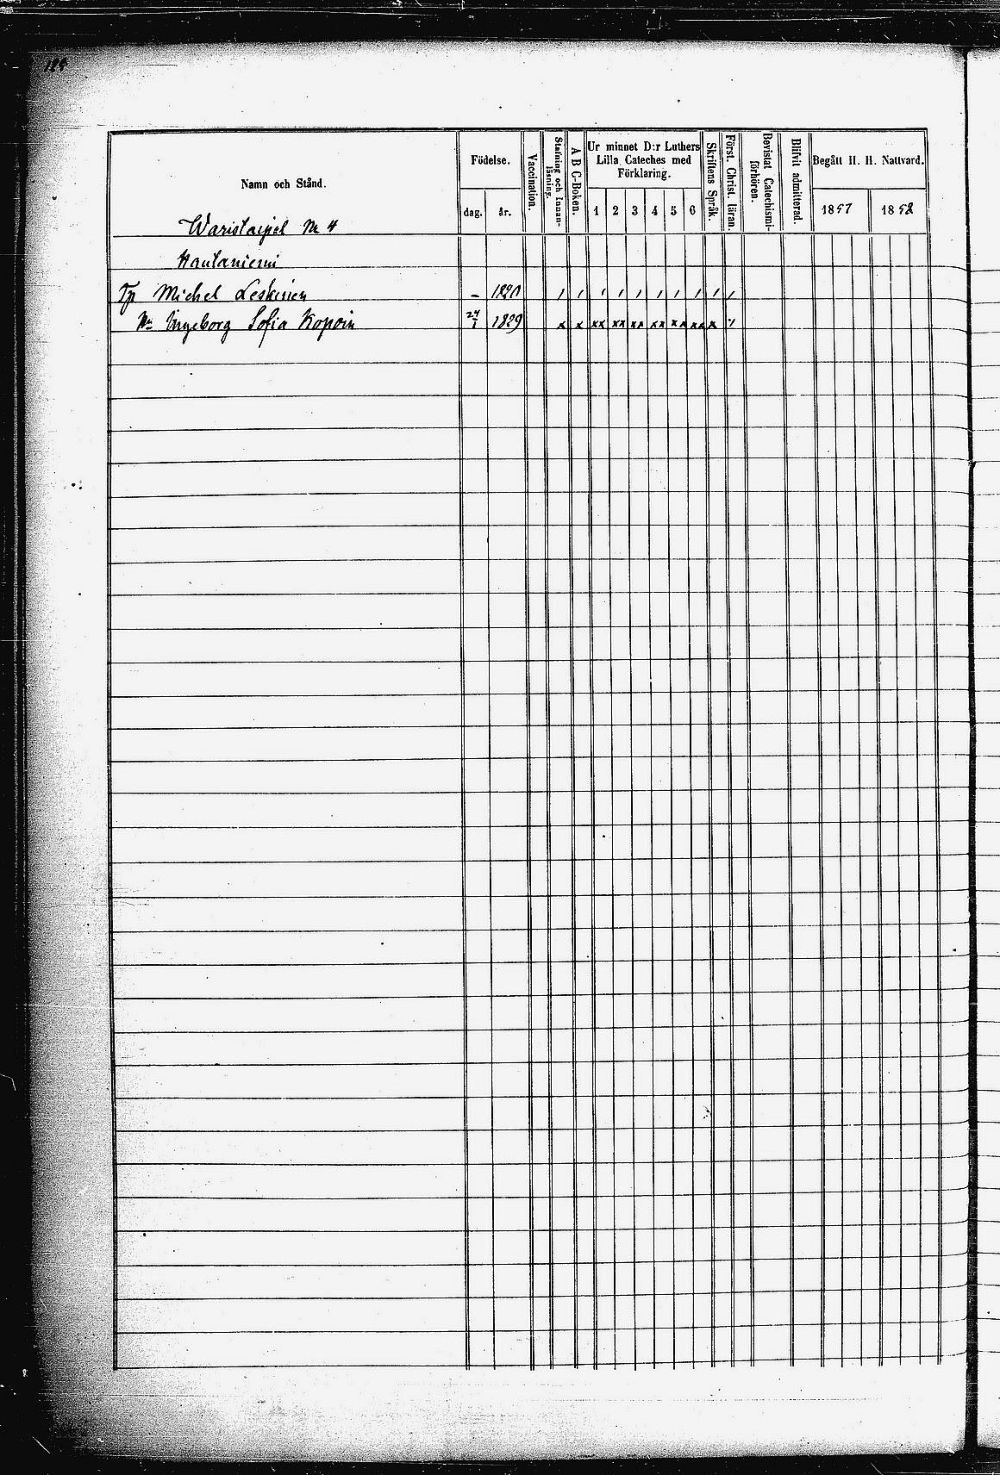 Namn och Stånd.
Födelse.
dag.
år.
Vaccination.
Stafning och Innan-
läsning.
A B C-Boken.
Ur minnet D:r Luthers
Lilla Cateches med
Förklaring.
1 2 3 4 5 6
Skriftens Språk.
Först. Christ. läran.
Bevistat Catechismi-
förhören.
Blifvit admitterad.
Begått H. H. Nattvard.
1857
1858
Waristaipal No 4
Hautaniemi
Tp Michel Leskinen – 1820
Hu Ingeborg Sofia Kopoin 1829